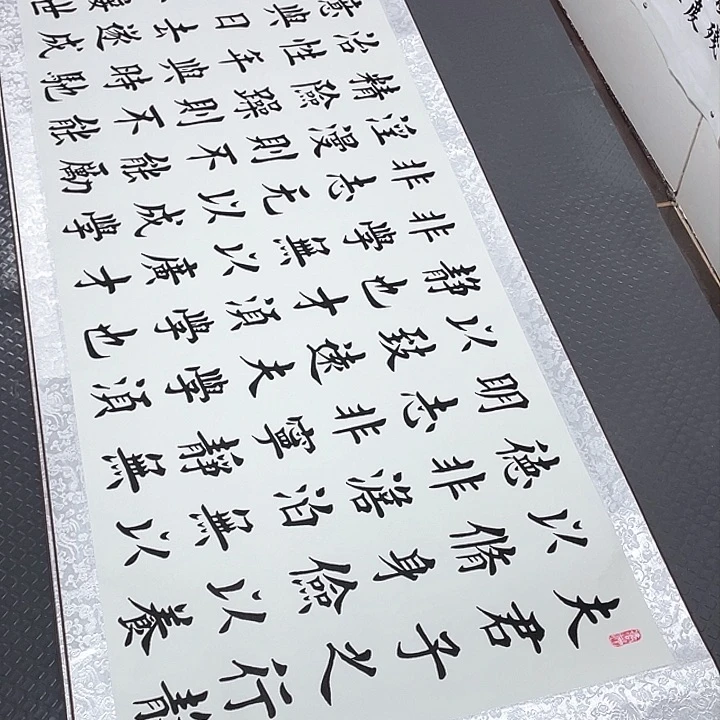 夫君子之行靜
以脩身儉以養
德非澹泊無以
明志非寧靜無
以致遠夫學須
靜也才須學也
非學無以廣才
非志无以成學
淫漫則不能勵
精險躁則不能
治性年與時馳
意與日去遂成
世
度殘